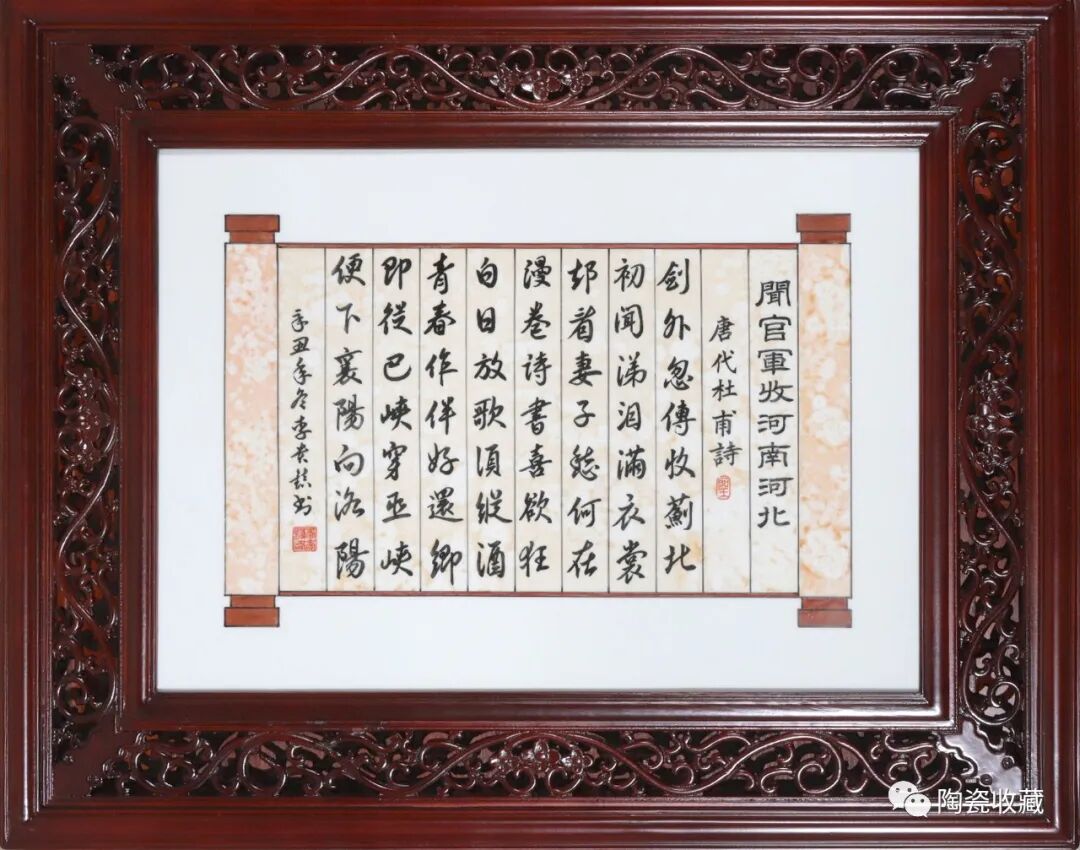 聞官軍收河南河北
唐代杜甫詩
劍外忽傳收薊北
初聞涕泪滿衣裳
却看妻子愁何在
漫卷詩書喜欲狂
白日放歌須縱酒
青春作伴好還鄉
即從巴峽穿巫峽
便下襄陽向洛陽
辛丑年冬李書
陶瓷收藏